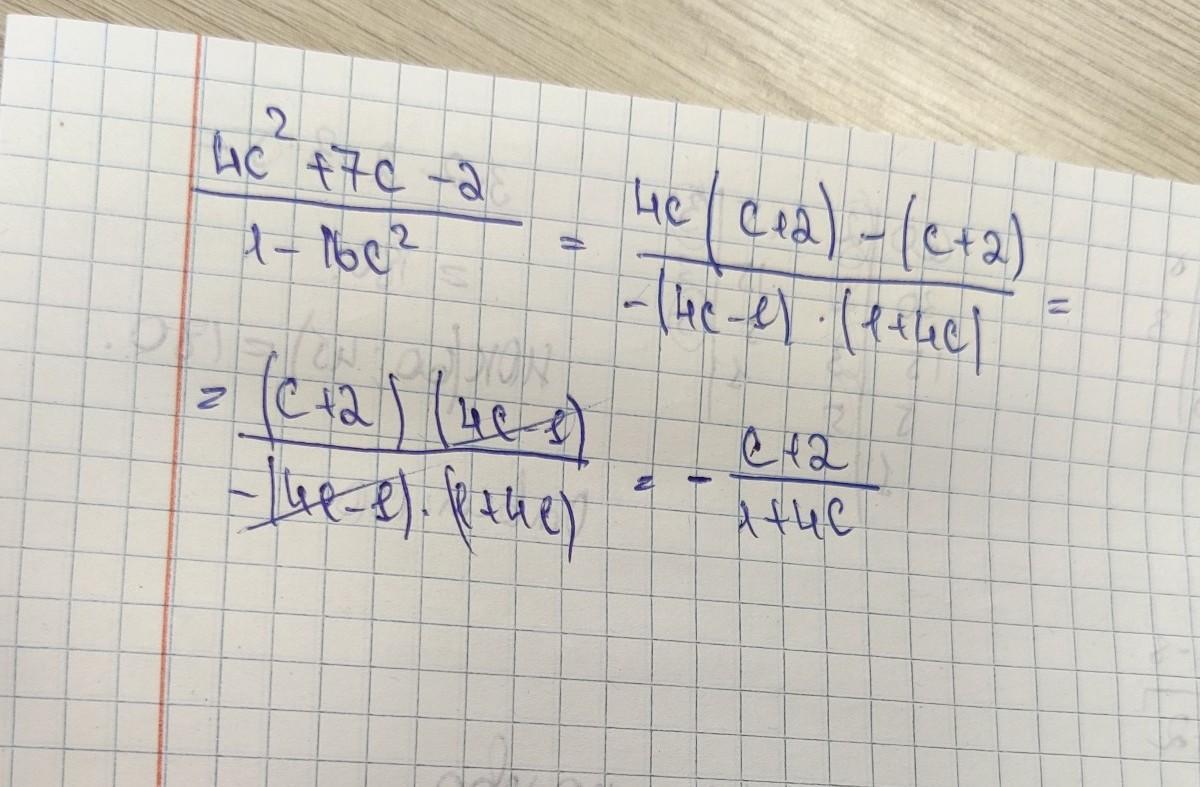 (4c² + 7c - 2)/(1 - 16c²) = (4c(c+2) - (c+2))/(-(4c-1)·(1+4c)) =
= ((c+2)(4c-1))/(-(4c-1)·(1+4c)) = - (c+2)/(1+4c)